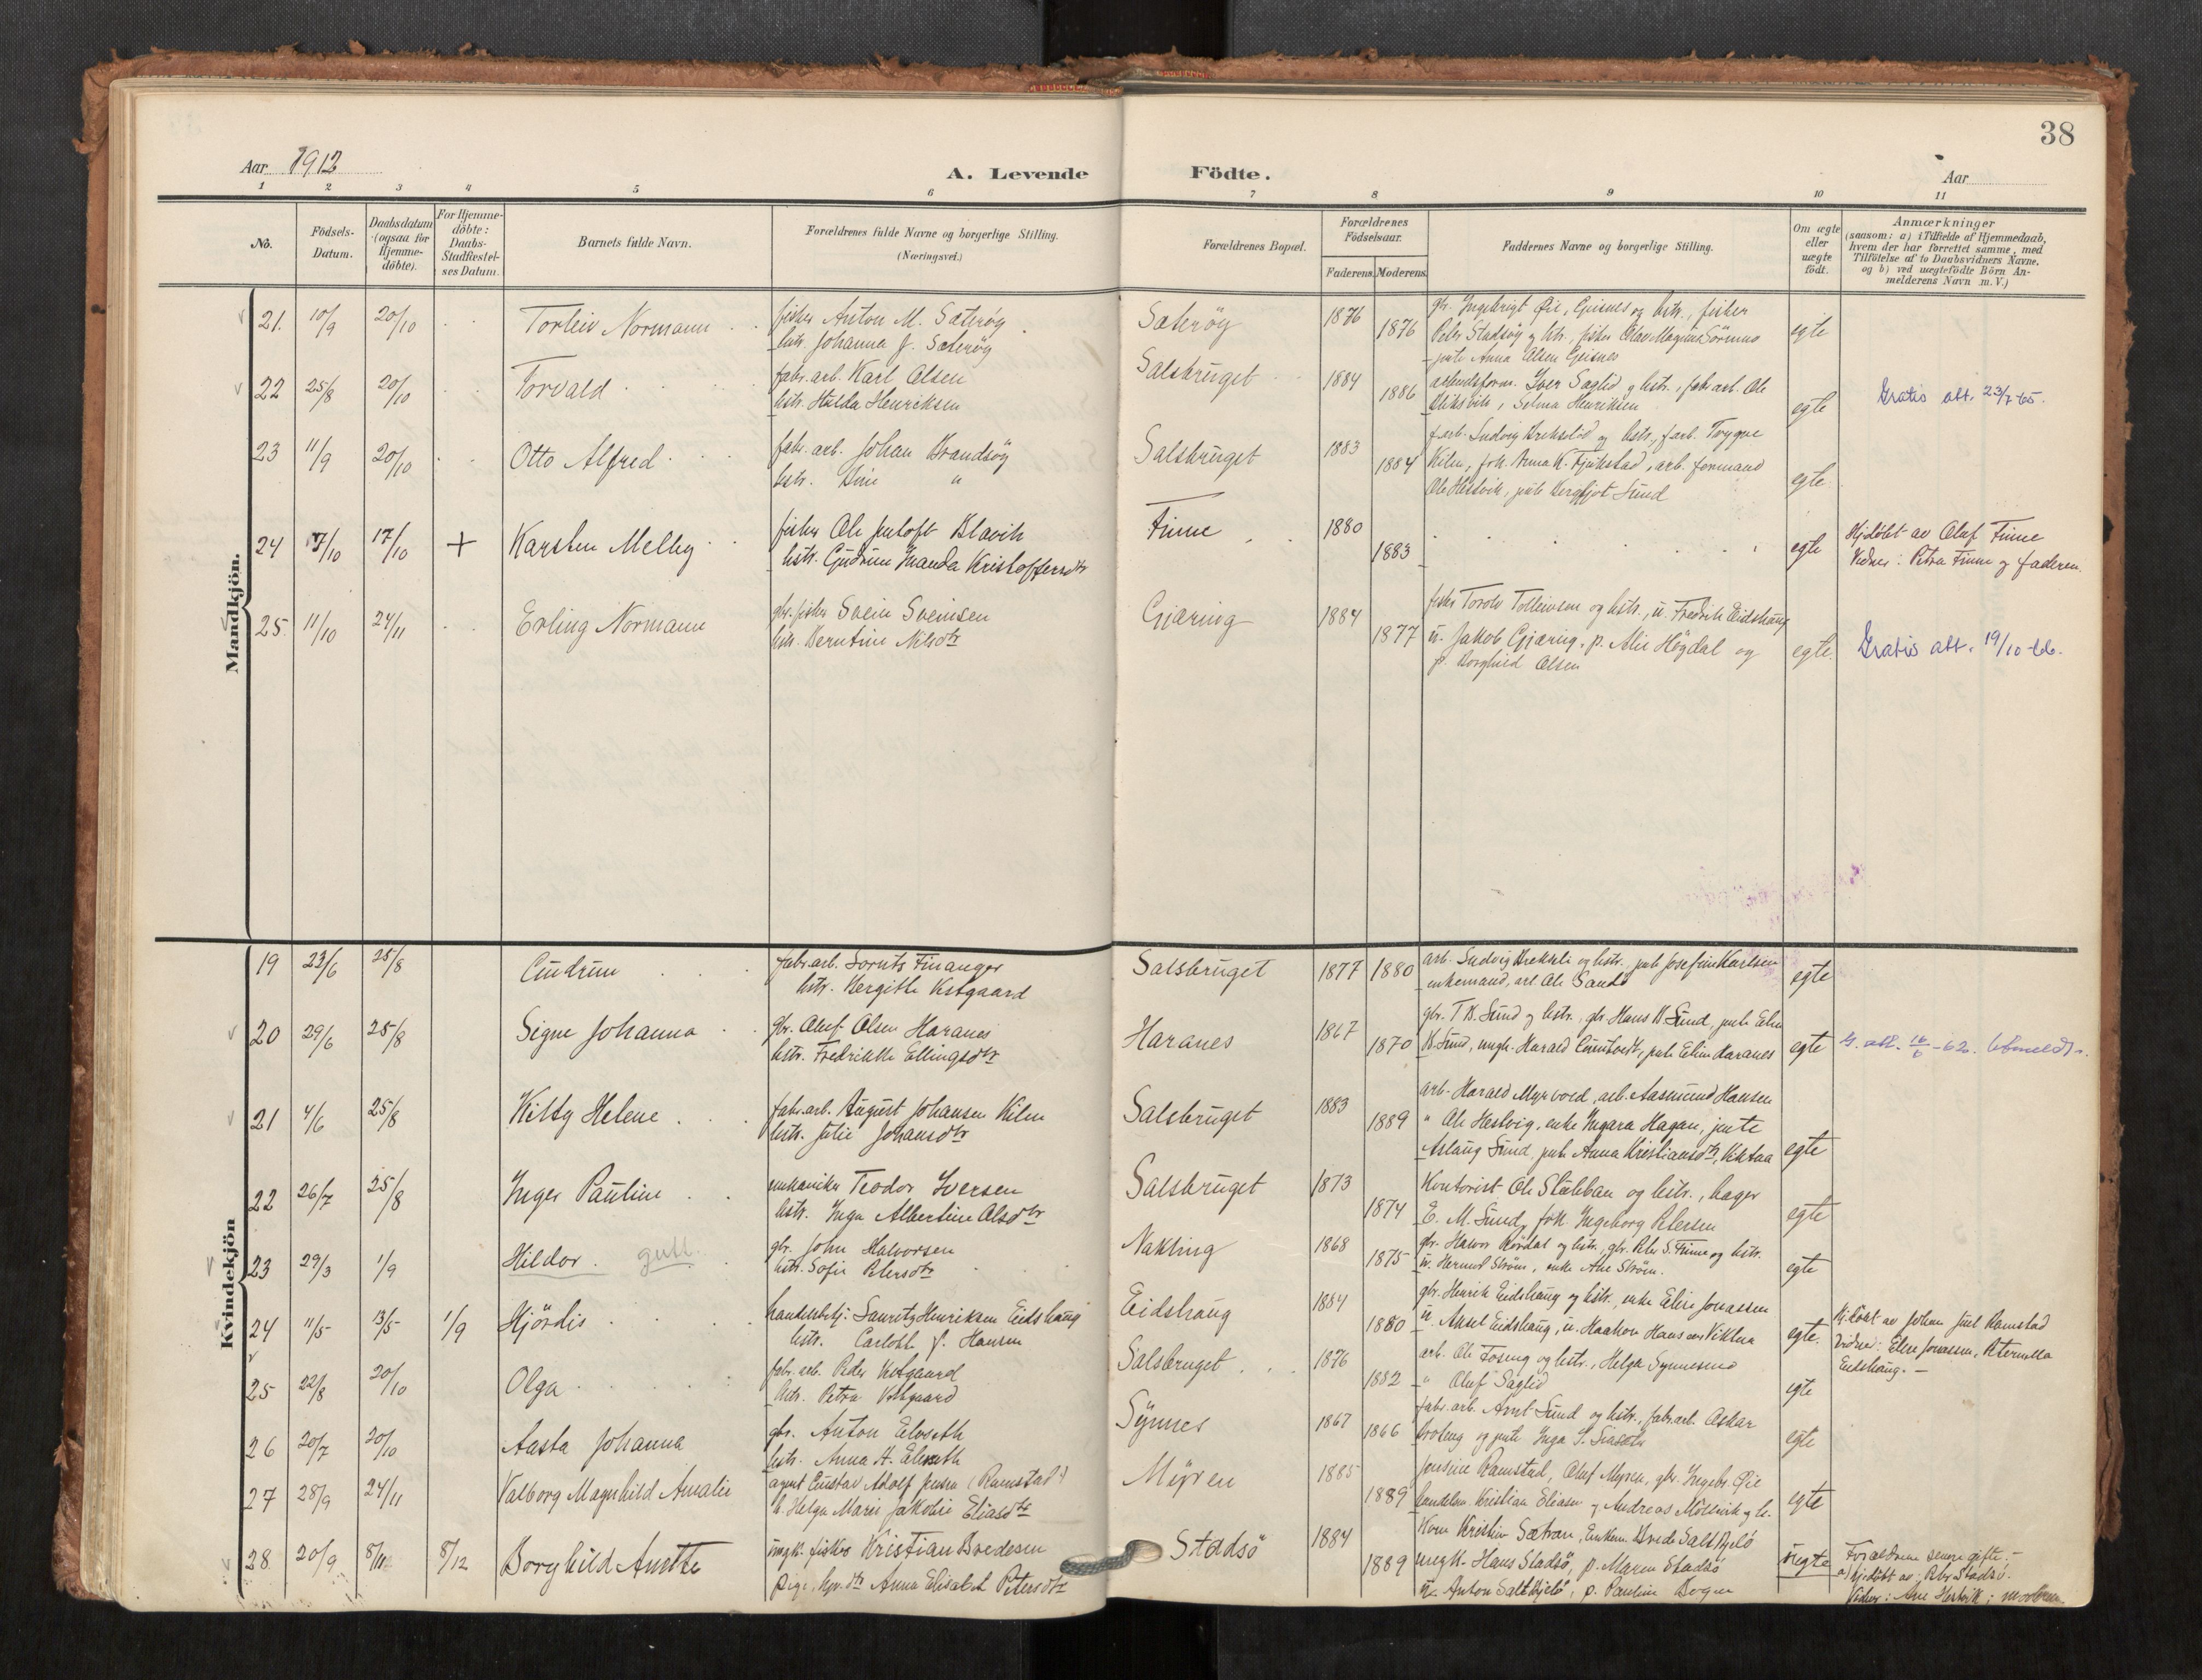 38
Aar 1912
A. Levende Födte.
Aar
1 2 3 4 5 6 7 8 9 10 11
No.
Födsels-Datum.
Daabsdatum (ogsaa for Hjemme-döbte).
For Hjemme-döbte: Daabs-Stadfæstel-ses Datum.
Barnets fulde Navn.
Forældrenes fulde Navne og borgerlige Stilling. (Næringsvei.)
Forældrenes Bopæl.
Forældrenes Födselsaar.
Faderens. Moderens.
Faddernes Navne og borgerlige Stilling.
Om ægte eller uægte födt.
Anmærkninger
(saasom: a) i Tilfælde af Hjemmedaab,
hvem der har forrettet samme, med
Tilföielse af to Daabsvidners Navne.
og b) ved uægtefödte Börn An-
melderens Navn m. V.)
Mandkjön.
21. 10/9 20/10 Torleiv Normann
fisker Anton M. Sæteröy
hstr. Johanna J. Sæteröy
Sæteröy 1876 1876
gbr. Ingebrigt Øie, Geisnes og hstr., fisker
Peder Stadsöy og hstr., fisker Olav Magnus Sörmo
pike Anna Olsen Geisnes
egte
22 25/8 20/10 Torvald
fabr. arb. Karl Olsen
hstr. Hulda Henriksen
Salsbruget 1884 1886
arbeidsform. Iver Saglid og hstr., fabr. arb. Ole
Selma Henriksen
egte
Gratis att. 23/7-65.
23 11/9 20/10 Otto Alfred
fabr. arb. Johan Brandsöy
hstr. Dine "
Salsbruget 1883 1884
f. arb. Ludvig og hstr., f. arb. Trygve
Kilen, frk. Anna K. Fjukstad, arb. formand
Ole Hestvik, pike Bergljot Sund
egte
24 17/10 17/10 + Karsten Melby
fisker Ole Jentoft Blavik
hstr. Gudrun Amanda Kristoffersdtr
Finne 1880 1883
egte
Hj.döbt av Oluf Finne
Vidner: Petra Finne og faderen.
25. 11/10 24/11 Erling Normann
gbr. fisker Svein Sveinsen
hstr. Berntine Nilsdtr
Gjæring 1884 1877
fisker Torolv Tolleivsen og hstr., u. Fredrik Eidshaug
u. Jakob Gjæring, p. Alie Högdal og
p. Borghild Olsen
egte.
Gratis att. 19/10-66.
Kvindekjön
19 23/6 25/8 Gudrun
fabr. arb. Lornts Finanger
hstr. Bergitte Vestgaard
Salsbruget 1877 1880
arb. Ludvig og hstr. pike Josefine Karlsen
enkemand, arb Ole Sandö
egte
20 29/6 25/8 Signe Johanna
gbr. Oluf Olsen Haranes
hstr. Fredrikke Ellingsdtr
Haranes 1867 1870
gbr. T. B. Sund og hstr., gbr. Hans B. Sund, pike Elen
B. Sund, ungk. Harald, pike Elise Haranes
egte
G. att. 16/6-62.
21 4/6 25/8 Kitty Helene
fabr. arb. August Johansen Kilen
hstr. Julie Johansdtr
Salsbruget 1883 1889
arb. Harald Myrvold, arb. Aasmund Hansen
" Ole Hestvig, enke Ingara Hagan, jente
Aslaug Sund, pike Anna Kristiansdtr, Viktaa
egte
22 26/7 25/8 Inger Pauline
mekaniker Teodor Iversen
hstr. Inga Albertine Olsdtr
Salsbruget 1873 1874
Kontorist Ole og hstr., bager
E. M. Sund, frk. Ingeborg Petersen
egte
23 29/3 1/9 Hildor. gutt
gbr. John Halvorsen
hstr. Sofie Petersdtr
Nakling 1868 1875
gbr. Halvor Rördal og hstr., gbr. Peter S. Finne og hstr.
u. Ström, enke Ane Ström.
egte
24 11/5 13/5 1/9 Hjördis
handelsbetj. Lauritz Henriksen Eidshaug
hstr. Carlotte J. Hansen
Eidshaug 1884 1880
gbr. Henrik Eidshaug og hstr., enke Elise Jonassen
u. Aksel Eidshaug, u. Haakon Hansen Viktna
egte
Hj.döbt av Johan Juel Ramstad
Vidner: Elise Jonassen, Peternella
Eidshaug. —
25 22/8 20/10 Olga
fabr. arb. Peder Vestgaard
hstr. Petra Vestgaard
Salsbruget 1876 1882
arb. Ole Foseng og hstr., Helga Synnesmo
" Oluf Saglid
egte
26 20/7 20/10 Aasta Johanna
gbr. Anton Elvseth
hstr. Anna H. Elvseth
Synnes 1867 1866
fabr. arb. Arnt Sund og hstr., fabr. arb. Oskar
og pike Inga S.
egte
27 28/9 24/11 Valborg Magnhild Amalie
agent Gustav Adolf Jensen (Ramstad)
h. Helga Marie Jakobie Eliasdtr
Myren 1885 1889
Jensine Ramstad, Oluf Myren, gbr. Ingebr. Øie
handelsm. Kristian Eliasen og Andreas Möllevik og h.
egte
28 20/9 8/11 8/12 Borghild Anette
ungk. fisker Kristian Bredesen
pige, hjv. dtr Anna Elisabet Petersdtr
Stadsö 1884 1889
Kone Kristine Sætran, Enkem. Brede Saltkjelö
ungk. Hans Stadsö, p. Maren Stadsö
u. Anton Saltkjelö, p. Pauline Bogen
uegte
Forældrene senere gifte. —
a) hjdöbt av: Peter Stadsö.
Vidner: Ane Hestvik; moderen